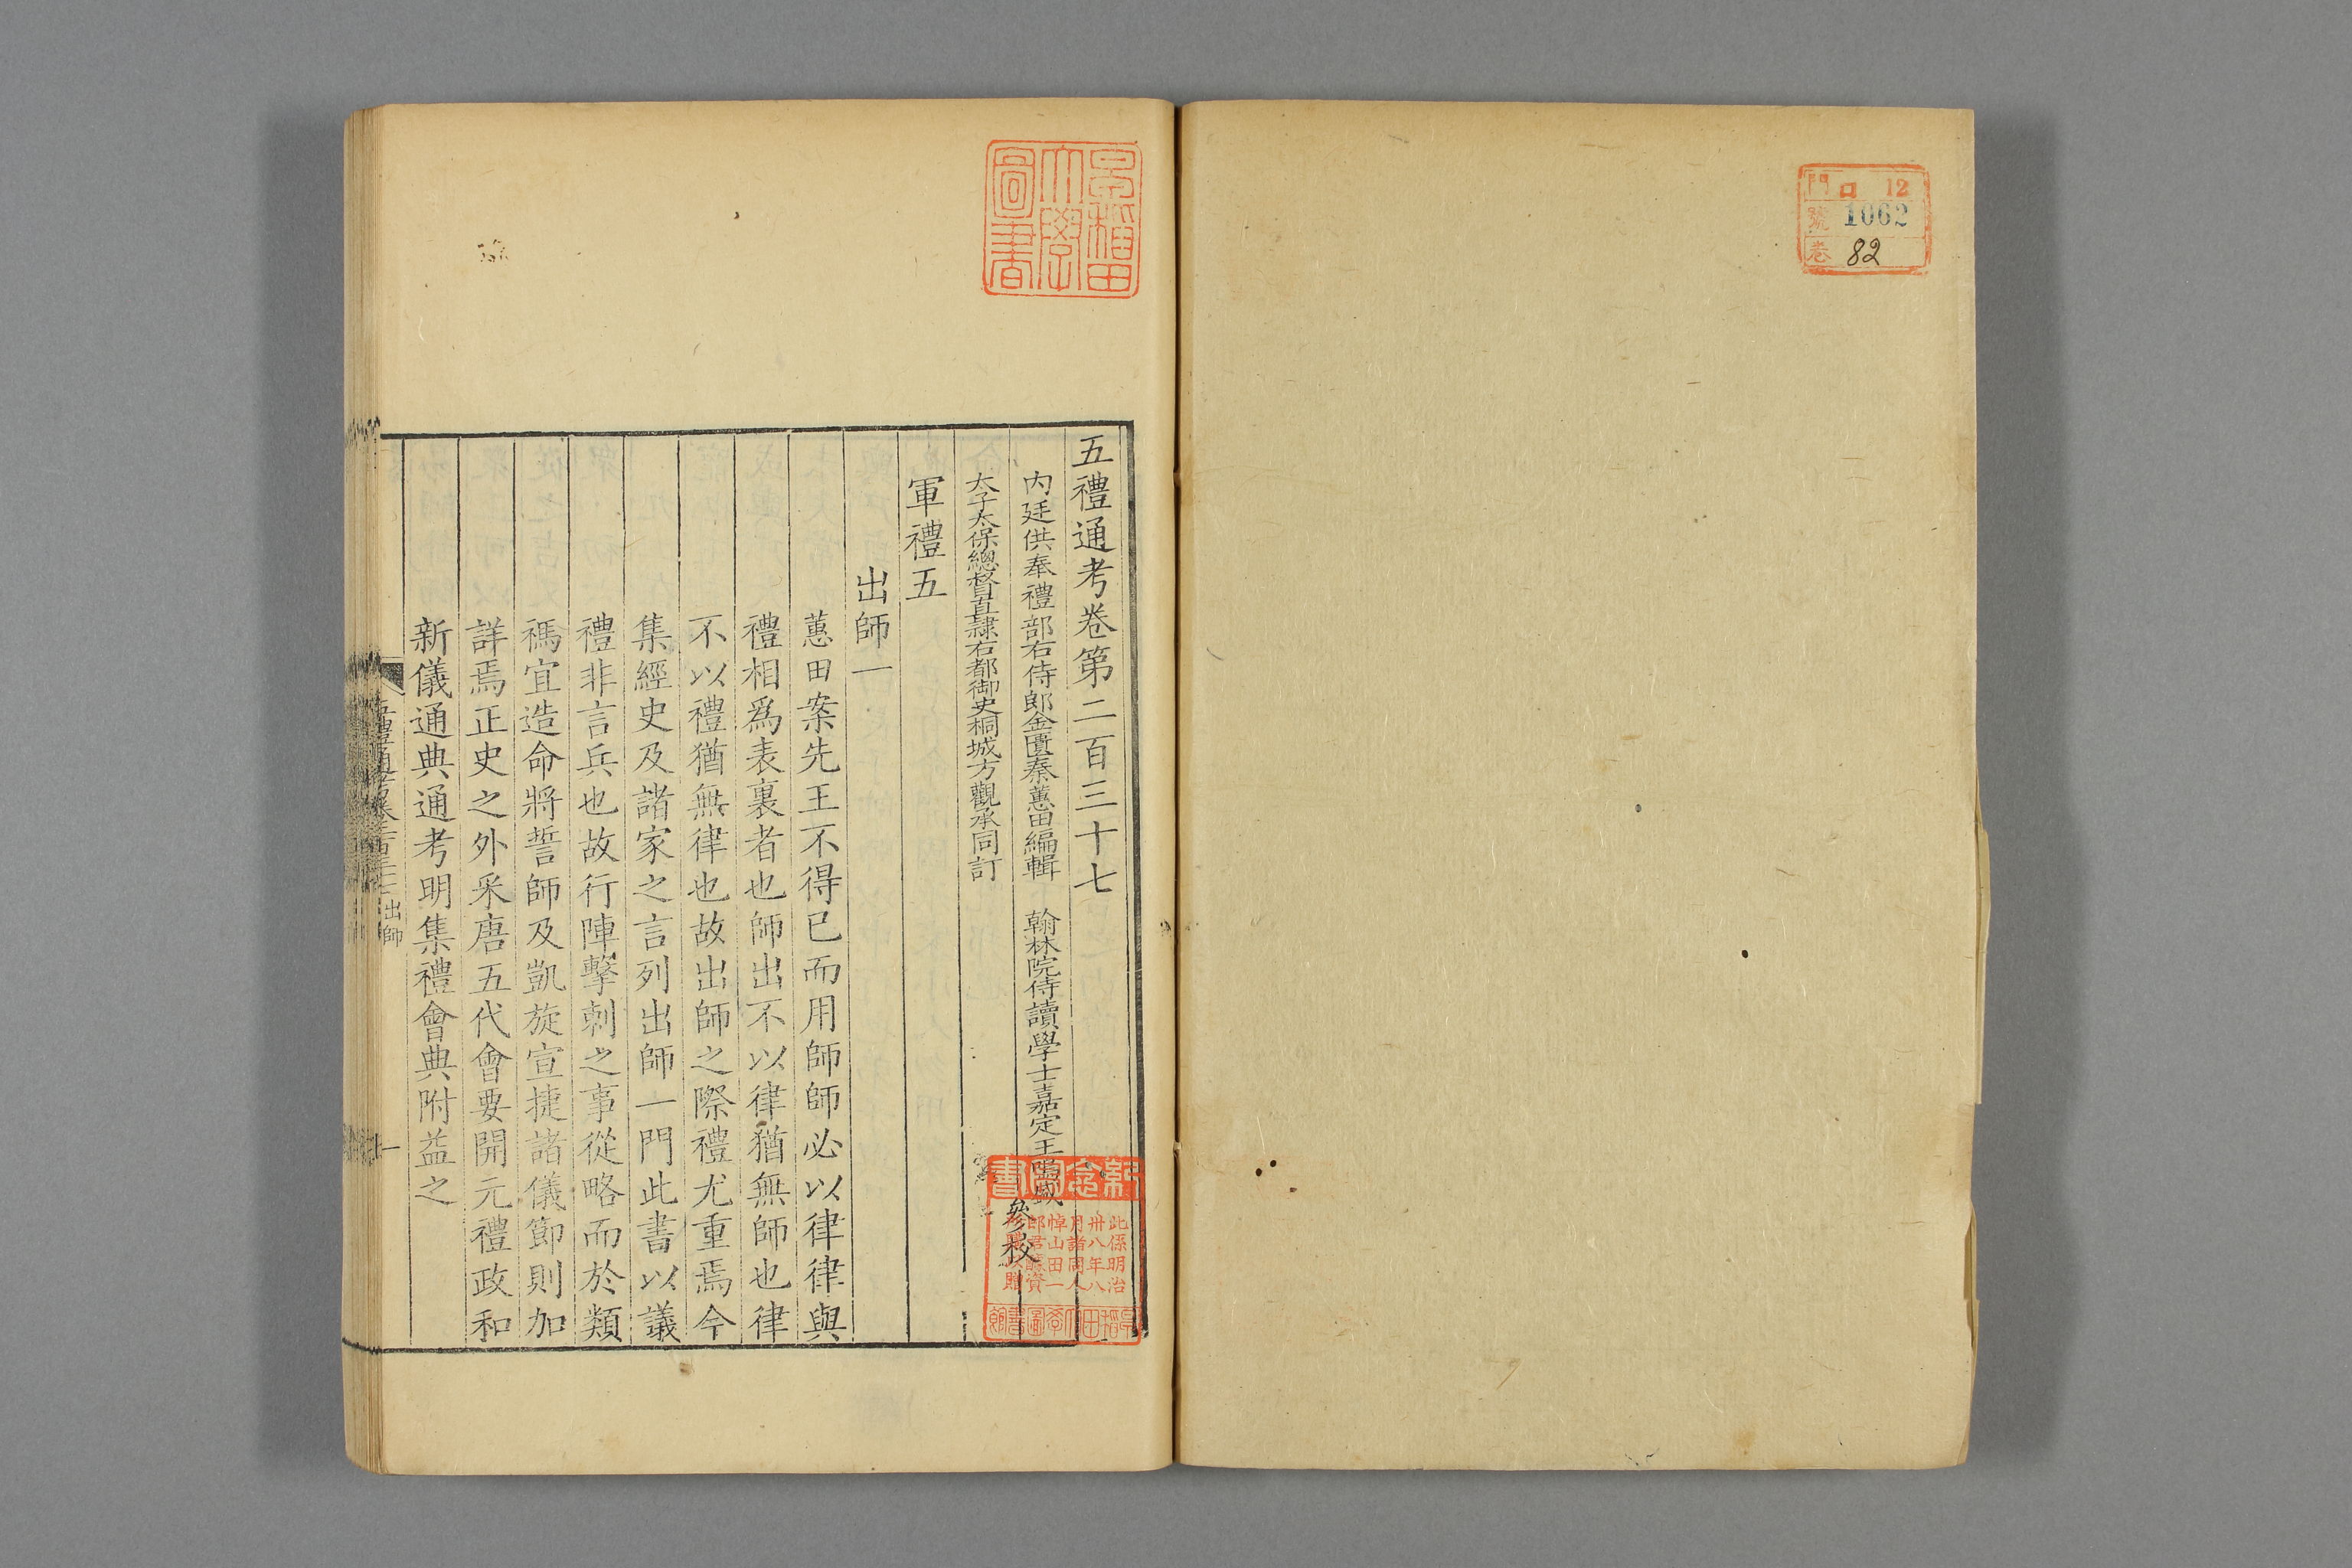 門 ロ 12
號 1062
卷 82
早稲田大學圖書
五禮通考卷第二百三十七
内廷供奉禮部右侍郎金匱秦蕙田編輯 翰林院侍讀學士嘉定王鳴盛
太子太保總督直隷右都御史桐城方觀承同訂 參校
軍禮五
出師一
蕙田案先王不得已而用師師必以律律與
禮相爲表裏者也師出不以律猶無師也律
不以禮猶無律也故出師之際禮尤重焉今
集經史及諸家之言列出師一門此書以議
禮非言兵也故行陣擊刺之事從略而於類
禡宜造命將誓師及凱旋宣捷諸儀節則加
詳焉正史之外采唐五代會要開元禮政和
新儀通典通考明集禮會典附益之
出師
一
紀念圖書
此係明治
卅八年八
月諸同人
悼山田一
郎君
早稲田大學圖書館